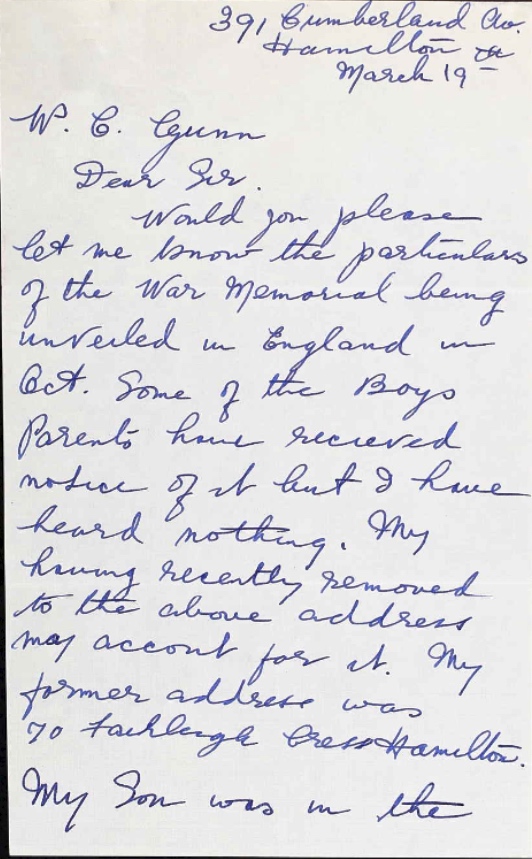 391 Cumberland Av.
Hamilton
March 19
W. C. Gunn
Dear Sir.
Would you please
let me know the particulars
of the War Memorial being
unveiled in England in
Oct. Some of the Boys
Parents have recieved
notice of it but I have
heard nothing. My
having recently removed
to the above address
may accont for it. My
former address was
70 Fairleigh Cress Hamilton.
My Son was in the